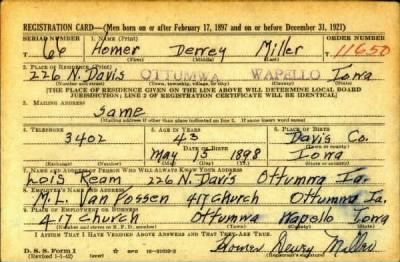 REGISTRATION CARD—(Men born on or after February 17, 1897 and on or before December 31, 1921)
SERIAL NUMBER 1. NAME (Print) ORDER NUMBER
U 66 Homer Derrey Miller 11650
(First) (Middle) (Last)
2. PLACE OF RESIDENCE (Print)
226 N. Davis OTTUMWA WAPELLO Iowa
(Number and street) (Town, township, village, or city) (County) (State)
[THE PLACE OF RESIDENCE GIVEN ON THE LINE ABOVE WILL DETERMINE LOCAL BOARD
JURISDICTION; LINE 2 OF REGISTRATION CERTIFICATE WILL BE IDENTICAL]
3. MAILING ADDRESS
Same
[Mailing address if other than place indicated on line 2. If same insert word same]
4. TELEPHONE 5. AGE IN YEARS 6. PLACE OF BIRTH
3402 43 Davis Co.
DATE OF BIRTH (Town or county)
May 15 1898 Iowa
(Exchange) (Number) (Mo.) (Day) (Yr.) (State or country)
7. NAME AND ADDRESS OF PERSON WHO WILL ALWAYS KNOW YOUR ADDRESS
Lois Ream 226 N. Davis Ottumwa Ia.
8. EMPLOYER'S NAME AND ADDRESS
M. L. Van Fossen 417 Church Ottumwa Ia.
9. PLACE OF EMPLOYMENT OR BUSINESS
417 Church Ottumwa Wapello Iowa
(Number and street or R. F. D. number) (Town) (County) (State)
I AFFIRM THAT I HAVE VERIFIED ABOVE ANSWERS AND THAT THEY ARE TRUE.
D. S. S. Form 1
(Revised 1-1-42) Homer Miller
(Registrant's signature)